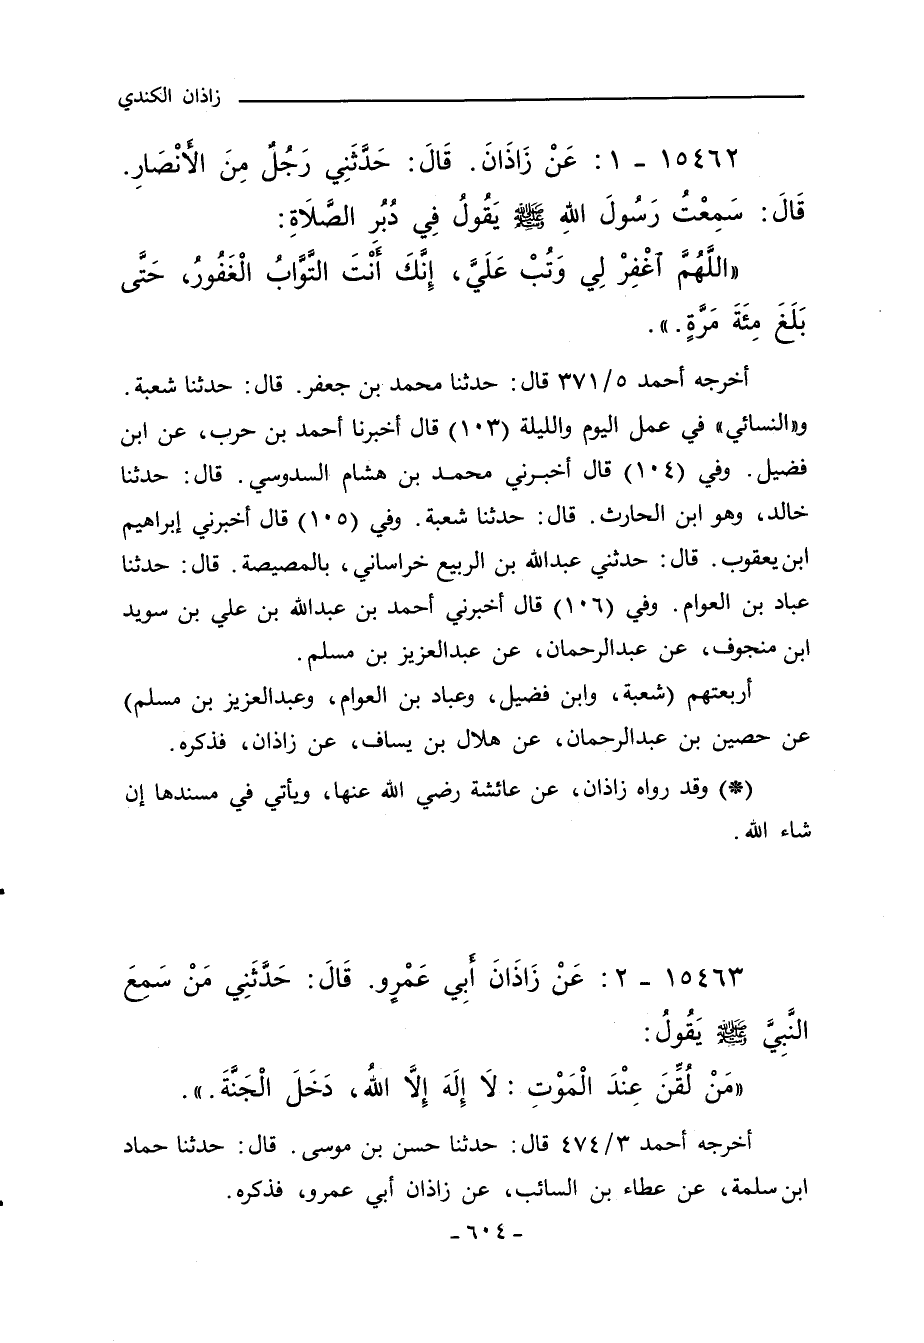 زاذان الكندي
١٥٤٦٢ - ١ : عَنْ زَاذَانَ. قَالَ: حَدَّثَنِي رَجُلٌ مِنَ الأَنْصَارِ.
قَالَ: سَمِعْتُ رَسُولَ اللهِ ﷺ يَقُولُ فِي دُبُرِ الصَّلَاةِ:
«اللَّهُمَّ ٱغْفِرْ لِي وَتُبْ عَلَيَّ، إِنَّكَ أَنْتَ التَّوَّابُ الْغَفُورُ، حَتَّى
بَلَغَ مِئَةَ مَرَّةٍ.».
أخرجه أحمد ٣٧١/٥ قال: حدثنا محمد بن جعفر. قال: حدثنا شعبة.
و«النسائي» في عمل اليوم والليلة (١٠٣) قال أخبرنا أحمد بن حرب، عن ابن
فضيل. وفي (١٠٤) قال أخبرني محمد بن هشام السدوسي. قال: حدثنا
خالد، وهو ابن الحارث. قال: حدثنا شعبة. وفي (١٠٥) قال أخبرني إبراهيم
ابن يعقوب. قال: حدثني عبدالله بن الربيع خراساني، بالمصيصة. قال: حدثنا
عباد بن العوام. وفي (١٠٦) قال أخبرني أحمد بن عبدالله بن علي بن سويد
ابن منجوف، عن عبدالرحمان، عن عبدالعزيز بن مسلم.
أربعتهم (شعبة، وابن فضيل، وعباد بن العوام، وعبدالعزيز بن مسلم)
عن حصين بن عبدالرحمان، عن هلال بن يساف، عن زاذان، فذكره.
(*) وقد رواه زاذان، عن عائشة رضي الله عنها، ويأتي في مسندها إن
شاء الله.
١٥٤٦٣ - ٢ : عَنْ زَاذَانَ أَبِي عَمْرٍو. قَالَ: حَدَّثَنِي مَنْ سَمِعَ
النَّبِيَّ ﷺ يَقُولُ:
«مَنْ لُقِّنَ عِنْدَ الْمَوْتِ : لَا إِلَهَ إِلَّا اللهُ، دَخَلَ الْجَنَّةَ.».
أخرجه أحمد ٤٧٤/٣ قال: حدثنا حسن بن موسى. قال: حدثنا حماد
ابن سلمة، عن عطاء بن السائب، عن زاذان أبي عمرو، فذكره.
- ٦٠٤ -